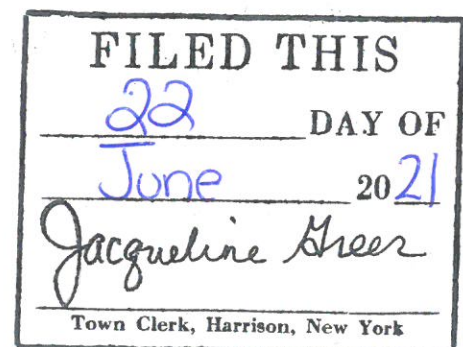 FILED THIS
22 DAY OF
June 2021
Jacqueline Greer
Town Clerk, Harrison, New York